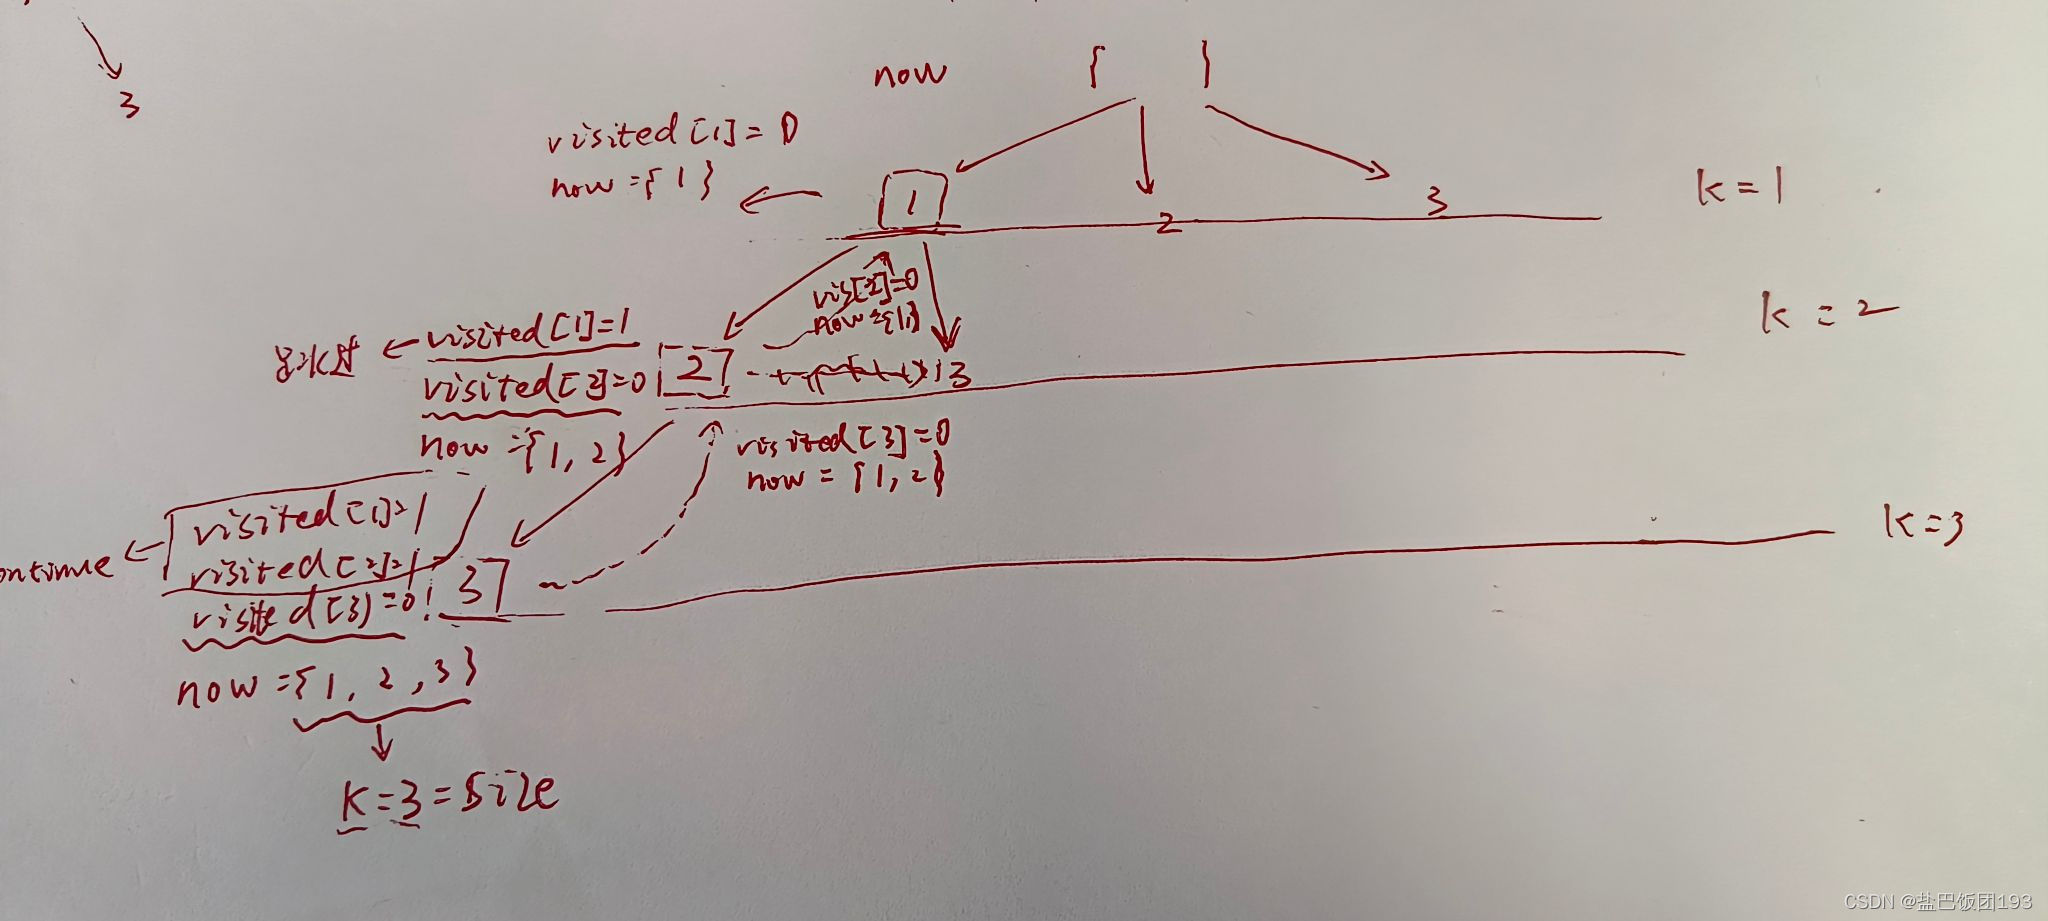 3
now { }
visited[1]=0
now={1}
1
2
3
k=1
vis[2]=0
now={1}
visited[1]=1
visited[2]=0
2
3
now={1,2}
k=2
visited[3]=0
now={1,2}
visited[1]=1
visited[2]=1
ontinue
visited[3]=0
3
k=3
now={1,2,3}
k=3=size
CSDN @盐巴饭团193